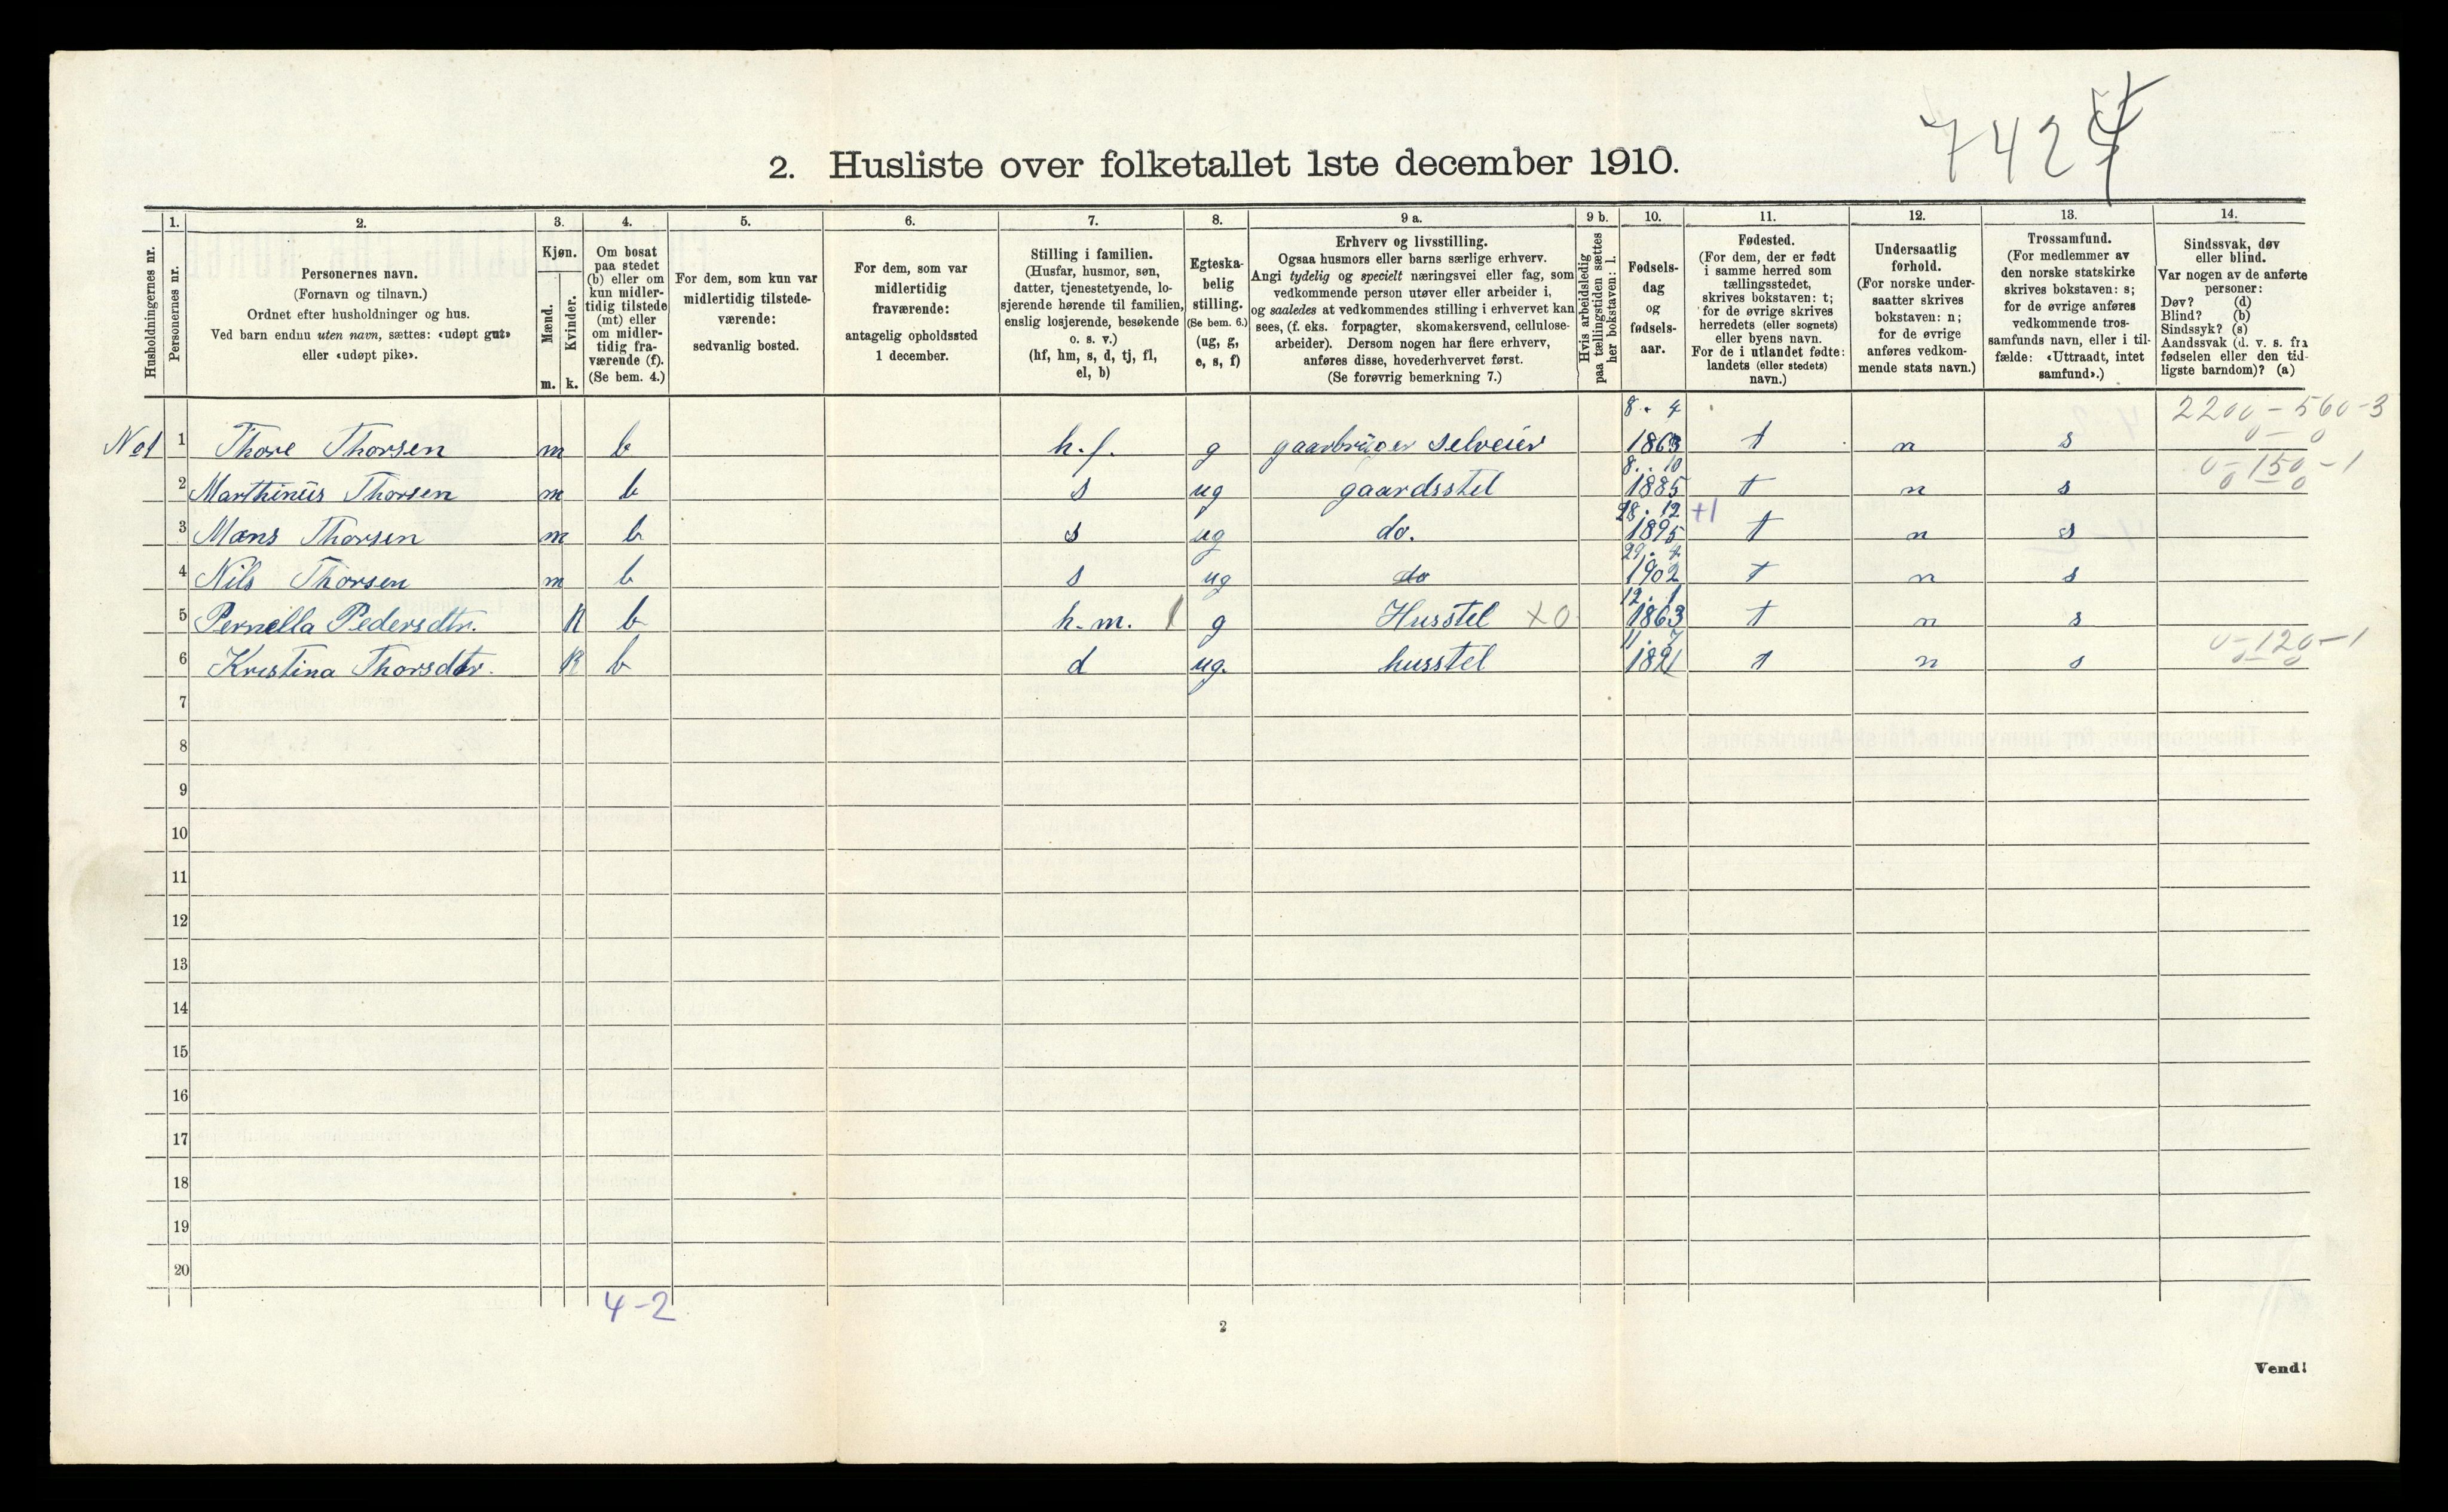 7424
2. Husliste over folketallet 1ste december 1910.
Husholdningernes nr.
1. Personernes nr.
2. Personernes navn.
(Fornavn og tilnavn.)
Ordnet efter husholdninger og hus.
Ved barn endnu uten navn, sættes: «udøpt gut»
eller «udøpt pike».
3. Kjøn.
Mænd. m.
Kvinder. k.
4. Om bosat
paa stedet
(b) eller om
kun midler-
tidig tilstede
(mt) eller
om midler-
tidig fra-
værende (f).
(Se bem. 4.)
5. For dem, som kun var
midlertidig tilstede-
værende:
sedvanlig bosted.
6. For dem, som var
midlertidig
fraværende:
antagelig opholdssted
1 december.
7. Stilling i familien.
(Husfar, husmor, søn,
datter, tjenestetyende, lo-
sjerende hørende til familien,
enslig losjerende, besøkende
o. s. v.)
(hf, hm, s, d, tj, fl,
el, b)
8. Egteska-
belig
stilling.
(Se bem. 6.)
(ug, g,
e, s, f)
9 a. Erhverv og livsstilling.
Ogsaa husmors eller barns særlige erhverv.
Angi tydelig og specielt næringsvei eller fag, som
vedkommende person utøver eller arbeider i,
og saaledes at vedkommendes stilling i erhvervet kan
sees, (f. eks. forpagter, skomakersvend, cellulose-
arbeider). Dersom nogen har flere erhverv,
anføres disse, hovederhvervet først.
(Se forøvrig bemerkning 7.)
9 b. Hvis arbeidsledig
paa tællingstiden sættes
her bokstaven: l.
10. Fødsels-
dag
og
fødsels-
aar.
11. Fødested.
(For dem, der er født
i samme herred som
tællingsstedet,
skrives bokstaven: t;
for de øvrige skrives
herredets (eller sognets)
eller byens navn.
For de i utlandet fødte:
landets (eller stedets)
navn.)
12. Undersaatlig
forhold.
(For norske under-
saatter skrives
bokstaven: n;
for de øvrige
anføres vedkom-
mende stats navn.)
13. Trossamfund.
(For medlemmer av
den norske statskirke
skrives bokstaven: s;
for de øvrige anføres
vedkommende tros-
samfunds navn, eller i til-
fælde: «Uttraadt, intet
samfund».)
14. Sindssvak, døv
eller blind.
Var nogen av de anførte
personer:
Døv? (d)
Blind? (b)
Sindssyk? (s)
Aandssvak (d. v. s. fra
fødselen eller den tid-
ligste barndom)? (a)
No1 1 Thore Thorsen m b h.f. g gaarbrüger selveier 8. 4 1863 t n s 2200-560-3
2 Marthinüs Thorsen m b s ug gaardsstel 8. 10 1885 t n s 0-150-1
3 Mons Thorsen m b s ug do. 28. 12 1895 +1 t n s
4 Nils Thorsen m b s ug do 29. 4 1902 t n s
5 Pernella Pedersdtr. K b h.m. g Husstel X0 12. 1 1863 t n s
6 Kristina Thorsdtr. K b d ug. husstel 11. 7 1891 t n s 0-120-1
7
8
9
10
11
12
13
14
15
16
17
18
19
20
4-2
2
Vend!